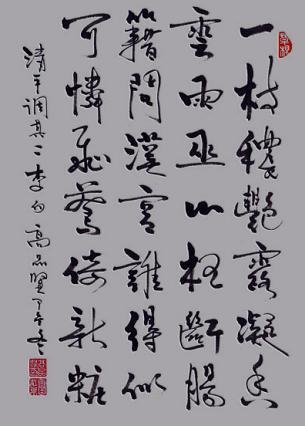 一枝穠艷露凝香
雲雨巫山枉斷腸
籍問漢宮誰得似
可憐飛燕倚新粧
清平调其二李白高品賢丁亥冬